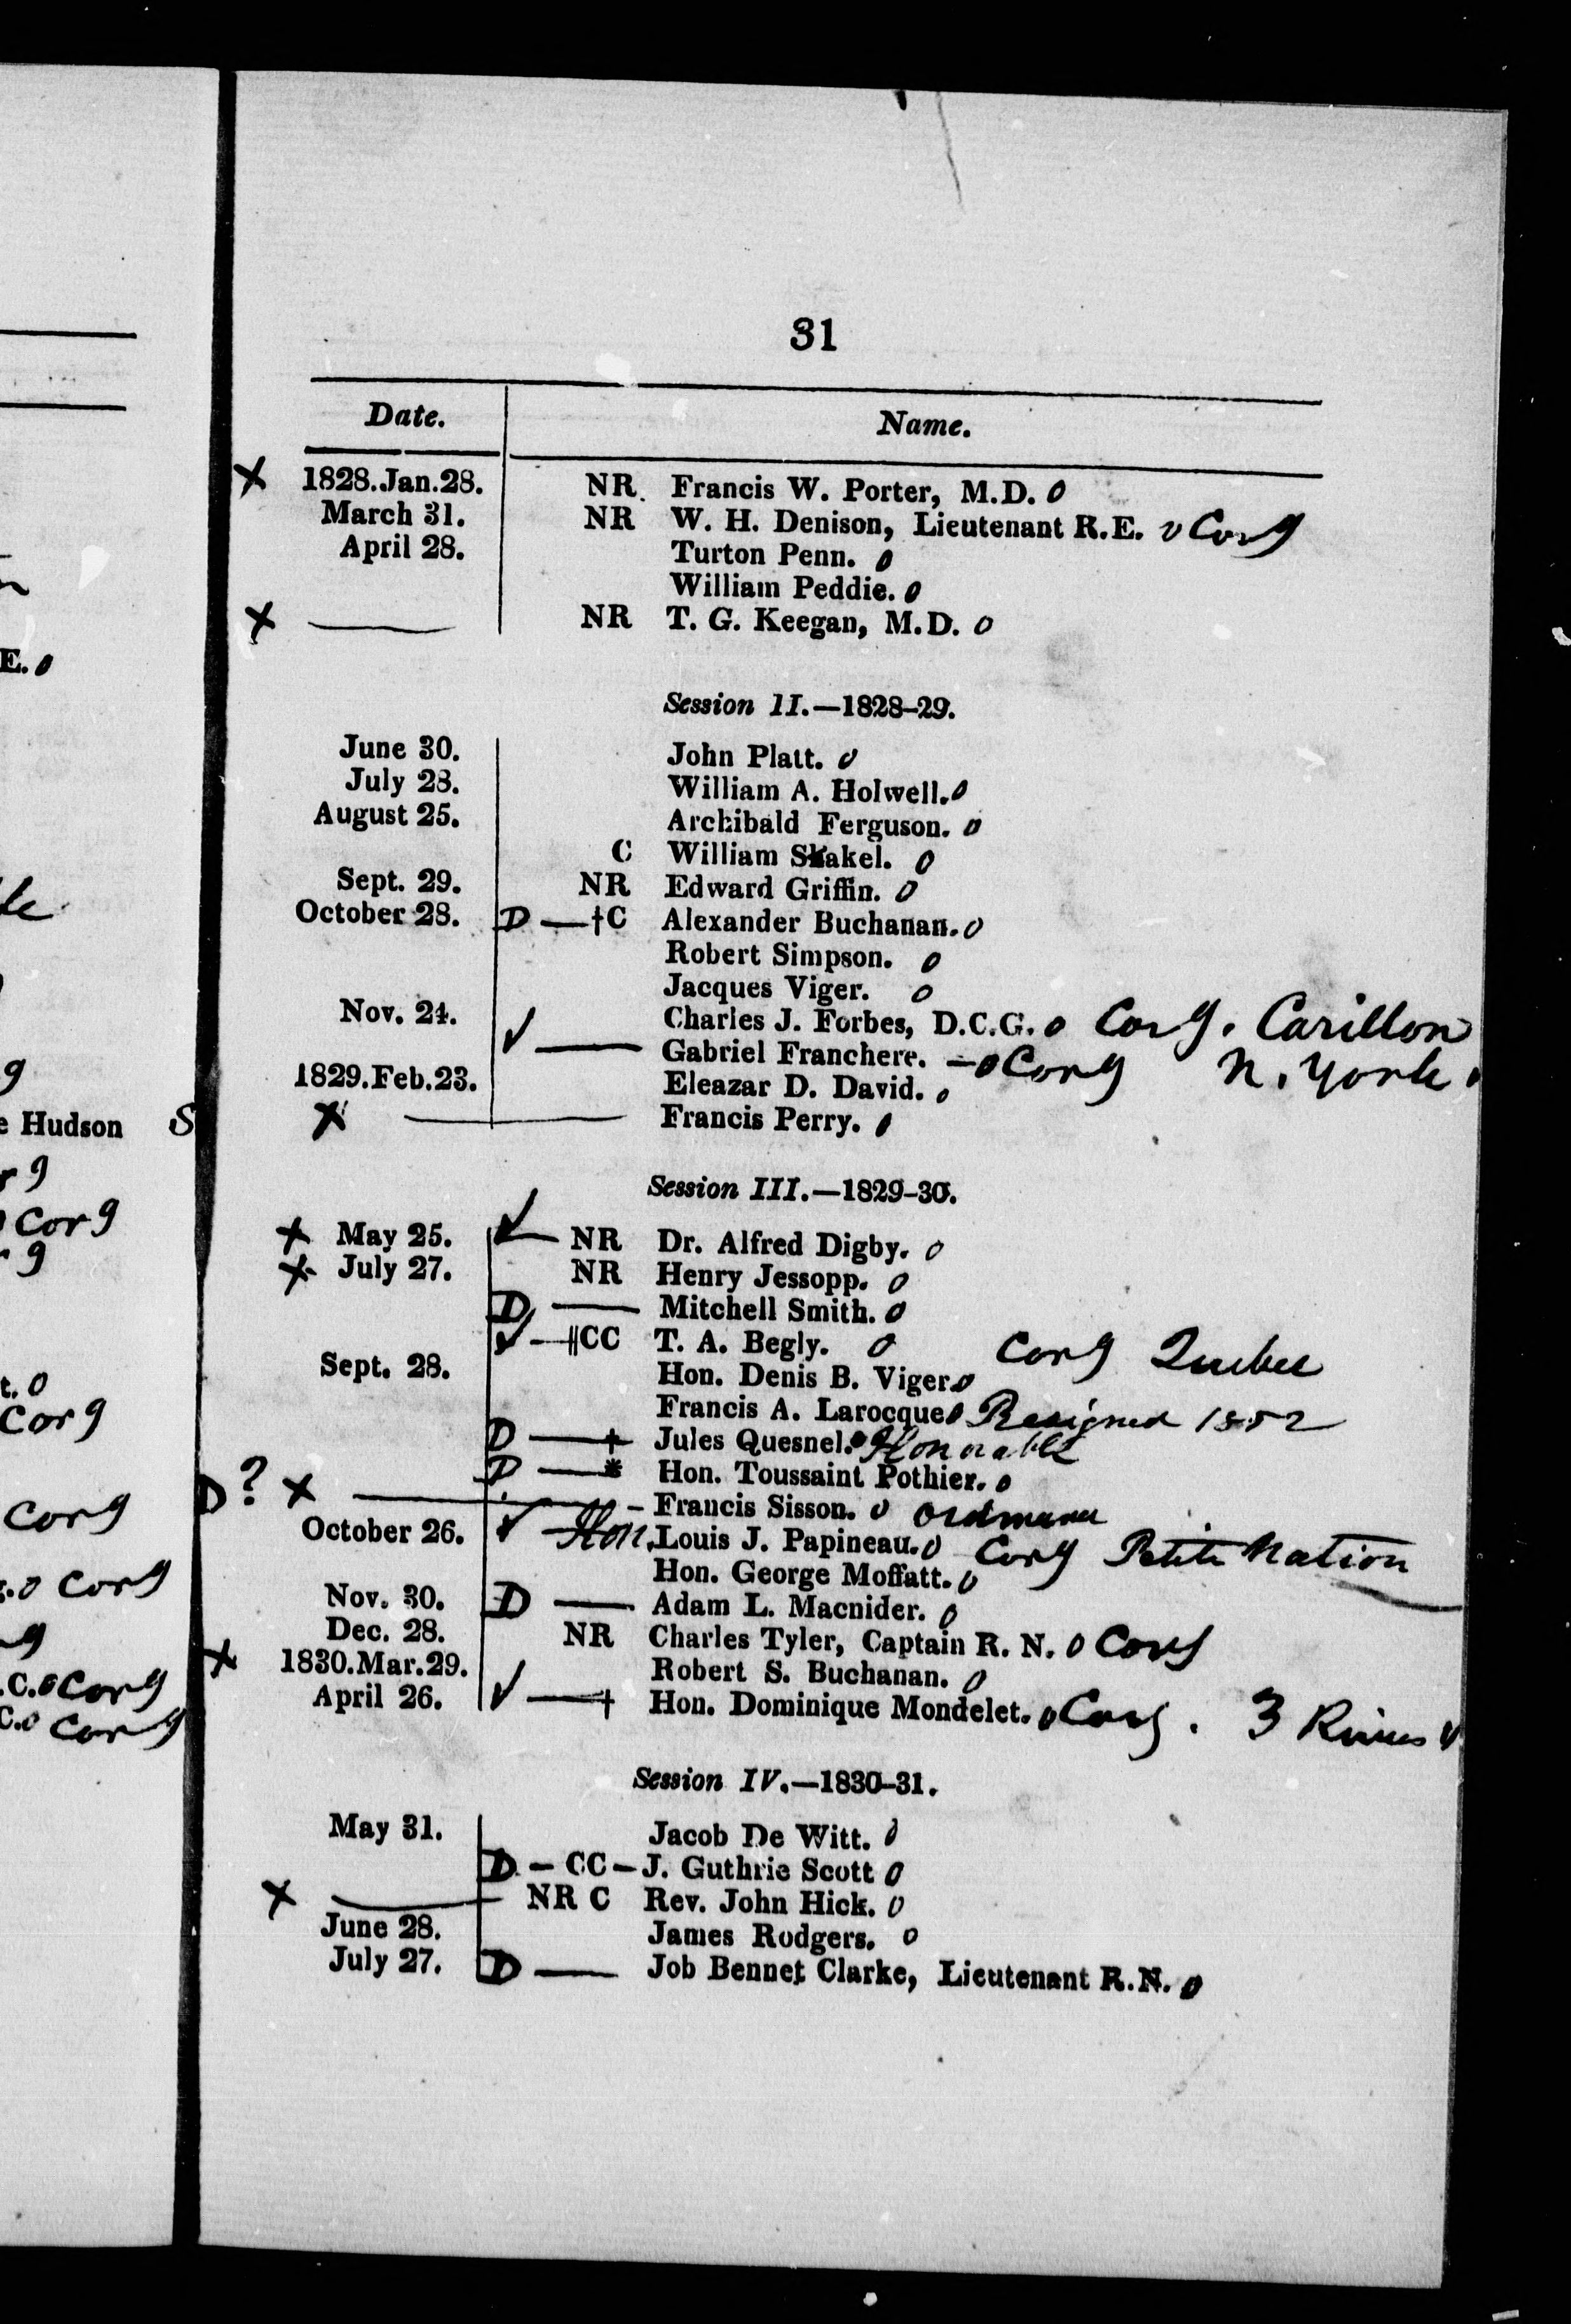 31
Date. Name.
X 1828.Jan.28. NR. Francis W. Porter, M.D. 0
March 31. NR W. H. Denison, Lieutenant R.E. 0 Corg
April 28. Turton Penn. 0
William Peddie. 0
X — NR T. G. Keegan, M.D. 0
Session II.—1828-29.
June 30. John Platt. 0
July 28. William A. Holwell. 0
August 25. Archibald Ferguson. 0
C William Skakel. 0
Sept. 29. NR Edward Griffin. 0
October 28. D — †C Alexander Buchanan. 0
Robert Simpson. 0
Jacques Viger. 0
Nov. 24. Charles J. Forbes, D.C.G. 0 Corg. Carillon
✓ — Gabriel Franchere. — 0 Corg N. York.
1829.Feb.23. Eleazar D. David. 0
X — Francis Perry. 0
Session III.—1829-30.
X May 25. ✓ — NR Dr. Alfred Digby. 0
X July 27. NR Henry Jessopp. 0
D — Mitchell Smith. 0
✓ — ‖CC T. A. Begly. 0 Corg Quebec
Sept. 28. Hon. Denis B. Viger. 0
Francis A. Larocque. 0 Resigned 1852
D — † Jules Quesnel. 0 Honorable
D — * Hon. Toussaint Pothier. 0
D ? X — Francis Sisson. 0
October 26. ✓ — Hon. Louis J. Papineau. 0 Corg Petite Nation
Hon. George Moffatt. 0
Nov. 30. D — Adam L. Macnider. 0
Dec. 28. NR Charles Tyler, Captain R. N. 0 Corg
X 1830.Mar.29. Robert S. Buchanan. 0
April 26. ✓ — † Hon. Dominique Mondelet. 0 Corg. 3 Rivers
Session IV.—1830-31.
May 31. Jacob De Witt. 0
D — CC — J. Guthrie Scott 0
X — NR C Rev. John Hick. 0
June 28. James Rodgers. 0
July 27. D — Job Bennet Clarke, Lieutenant R.N. 0
E. 0
g
e Hudson S
r g
Corg
g
t. 0
Corg
Corg
0 Corg
g
.C. 0 Corg
C. 0 Corg